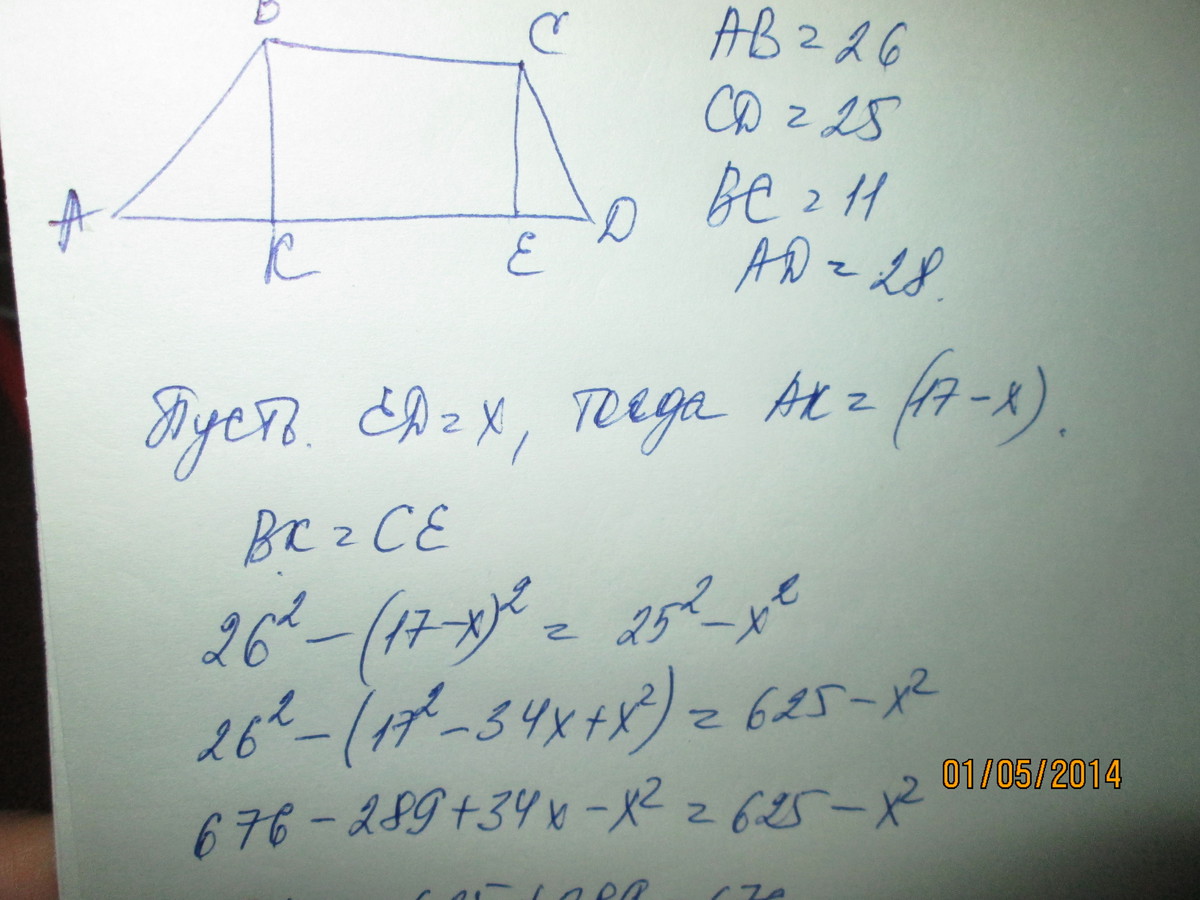 B
C
A
K
E
D
AB = 26
CD = 25
BC = 11
AD = 28.
Пусть. ED = x, тогда AK = (17 - x).
BK = CE
26² - (17 - x)² = 25² - x²
26² - (17² - 34x + x²) = 625 - x²
676 - 289 + 34x - x² = 625 - x²
01/05/2014